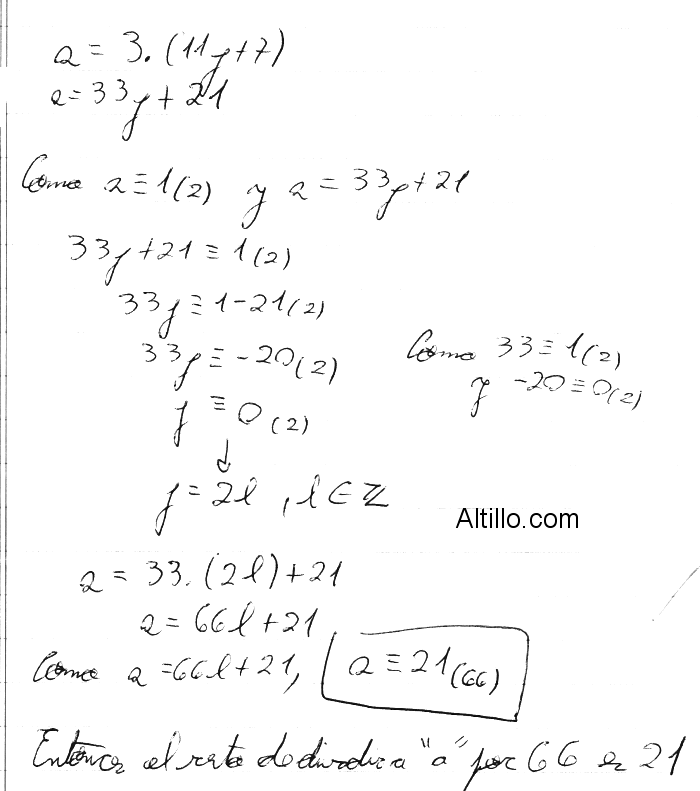 a = 3.(11j+7)
a = 33j + 21
Como a ≡ 1(2) y a = 33j+21
33j+21 ≡ 1(2)
33j ≡ 1-21(2)
33j ≡ -20(2)
Como 33 ≡ 1(2)
y -20 ≡ 0(2)
j ≡ 0(2)
↓
j = 2l , l ∈ ℤ
Altillo.com
a = 33.(2l)+21
a = 66l+21
Como a = 66l+21, a ≡ 21(66)
Entonces el resto de dividir a "a" por 66 es 21